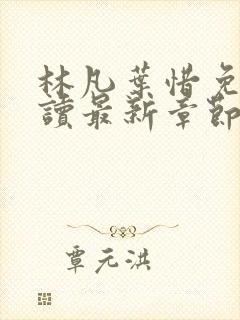 林凡葉惜免
讀最新章節
覃元洪